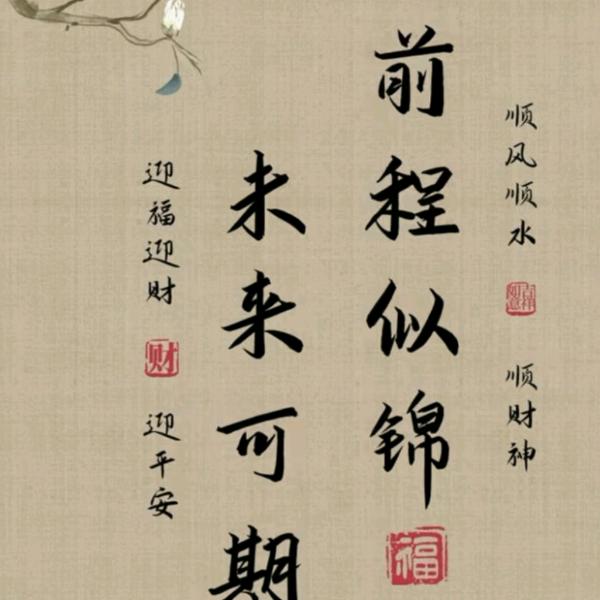 顺风顺水
顺财神
前程似锦
福
未来可期
迎福迎财
财
迎平安